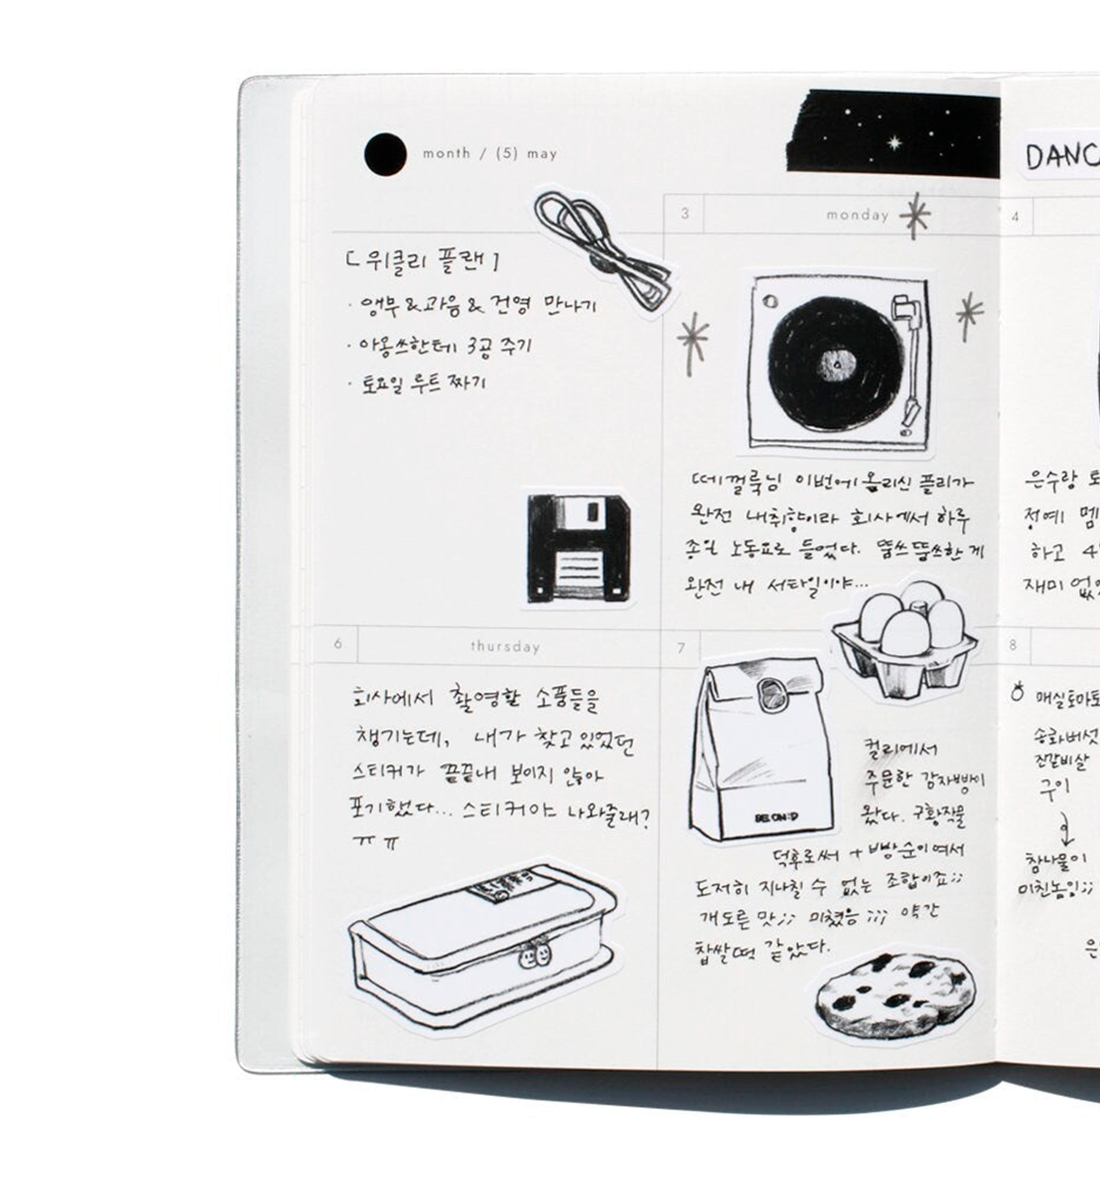 month / (5) may
DANC
3
monday
4
[위클리 플랜]
· 앵무&과음& 건영 만나기
· 아옹쓰한테 3공 주기
· 토요일 루트 짜기
떼껄룩님 이번에 올리신 플리가
완전 내취향이라 회사에서 하루
종일 노동요로 들었다. 뚬쓰뚬쓰한 게
완전 내 스타일이야...
은수랑 토
정예 멤
하고 4
재미 없
6
thursday
7
8
회사에서 촬영할 소품들을
챙기는데, 내가 찾고 있었던
스티커가 끝끝내 보이지 않아
포기했다... 스티커야 나와줄래?
ㅠㅠ
BEOND
컬리에서
주문한 감자빵이
왔다. 구황작물
덕후로써 + 빵순이여서
도저히 지나칠 수 없는 조합이죠;;
개도른 맛;; 미쳤음 ;;; 약간
찹쌀떡 같았다.
매실토마토
송화버섯
진갈비살
구이
참나물이
미친놈임;;
은